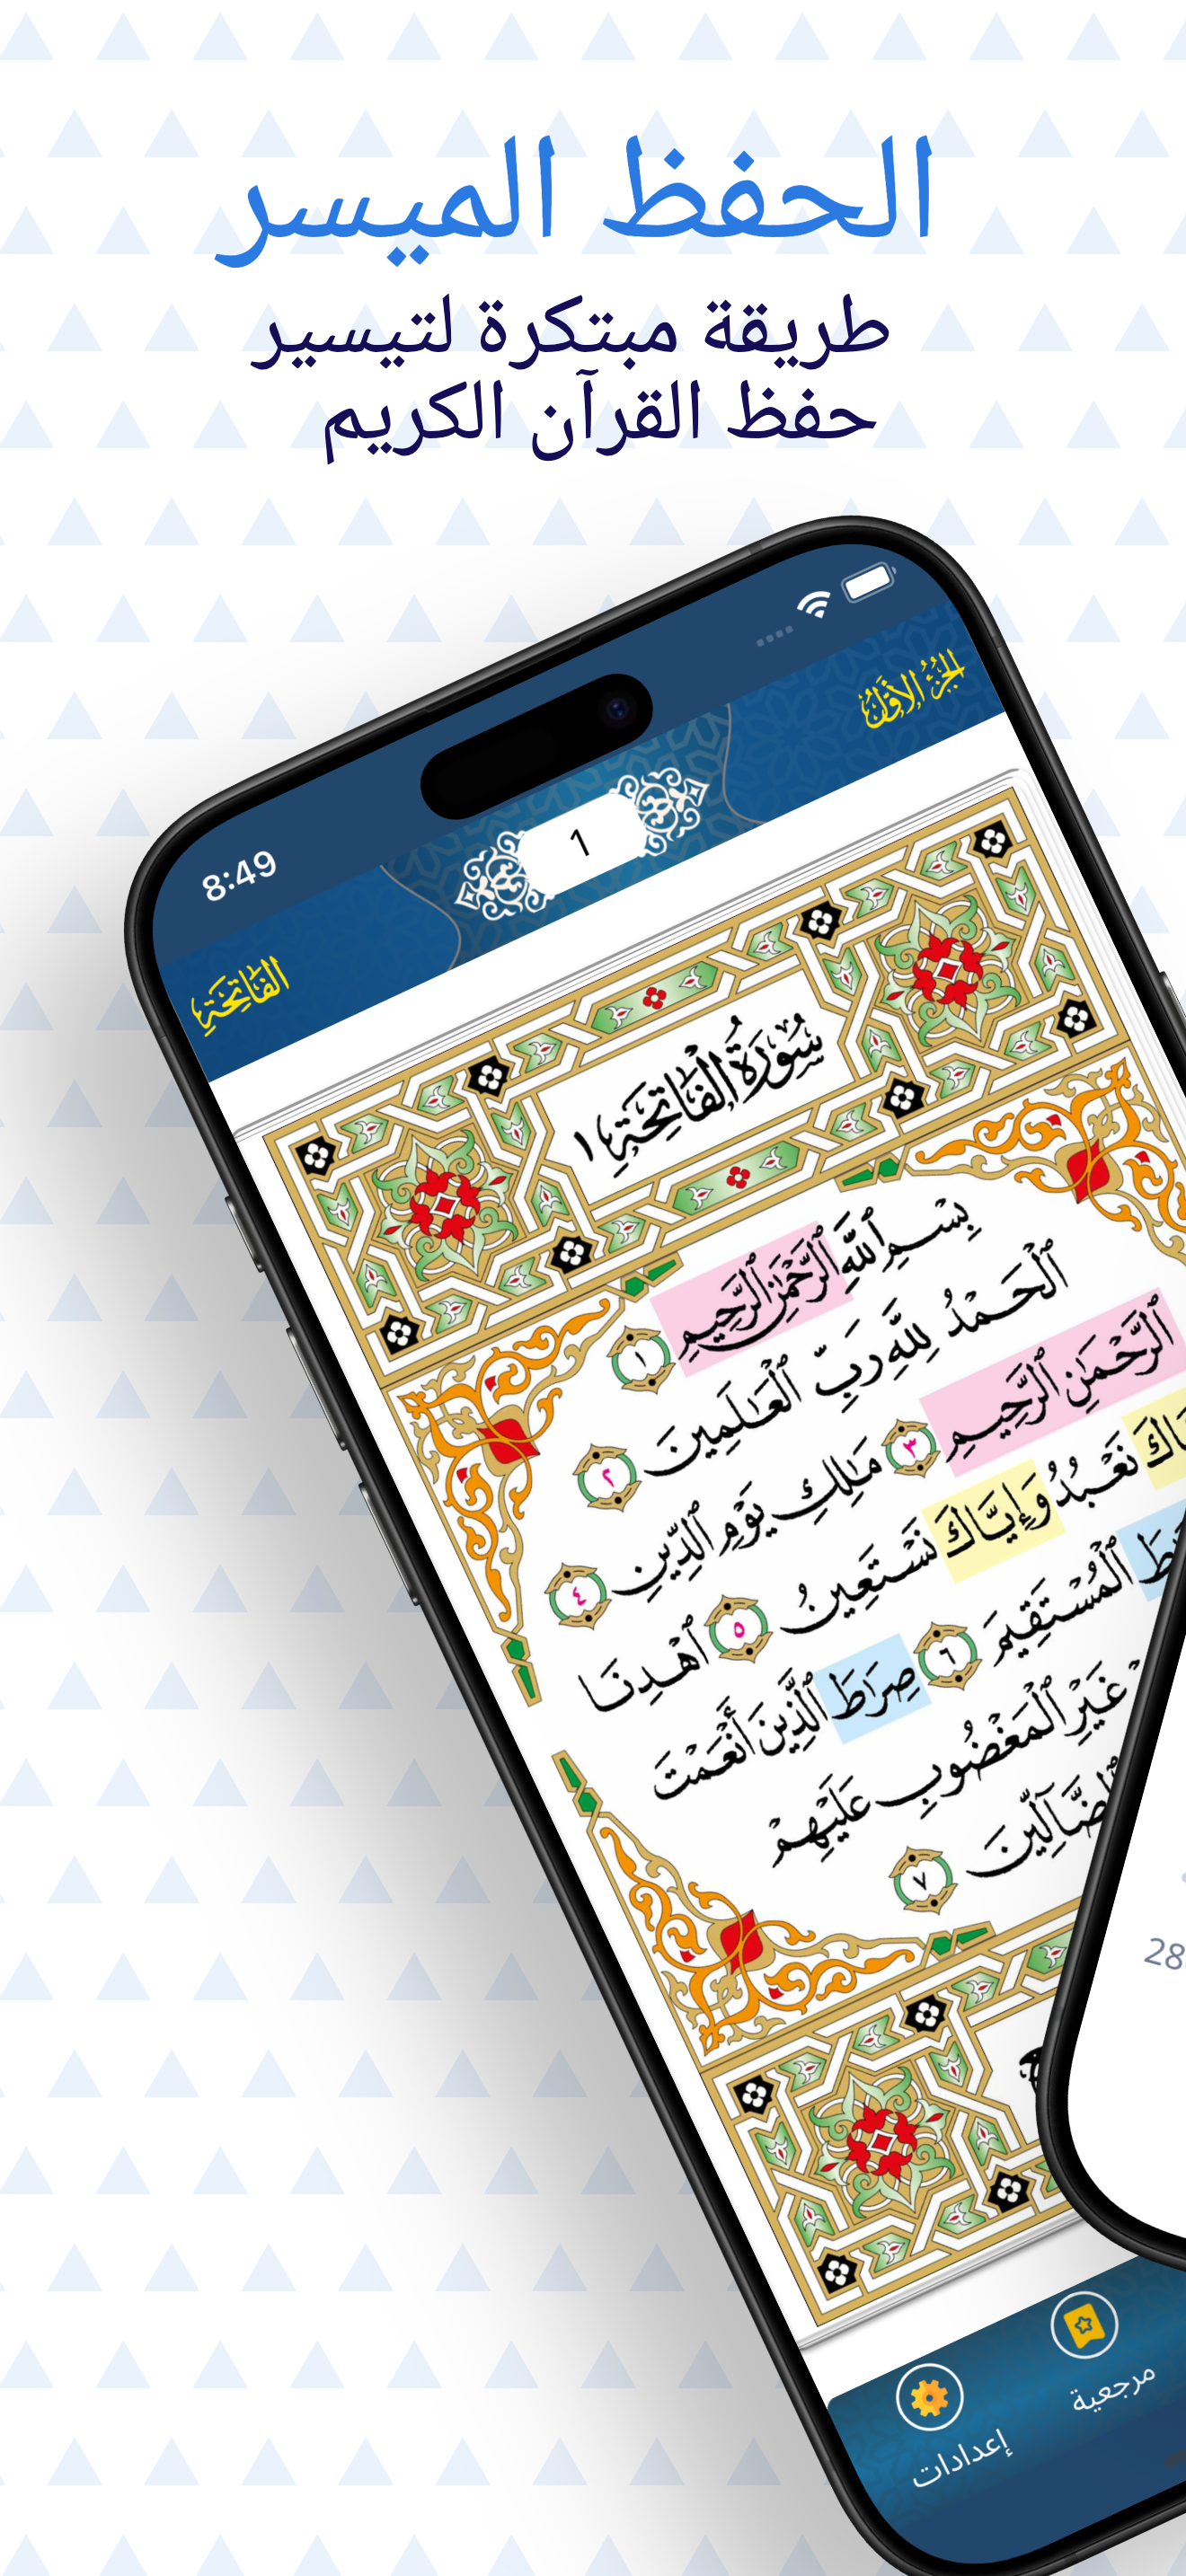 الحفظ الميسر
طريقة مبتكرة لتيسير
حفظ القرآن الكريم
8:49
الجزء الأول
1
الفاتحة
سُورَةُ الْفَاتِحَةِ ١
بِسْمِ ٱللَّهِ ٱلرَّحْمَٰنِ ٱلرَّحِيمِ ١
ٱلْحَمْدُ لِلَّهِ رَبِّ ٱلْعَٰلَمِينَ ٢
ٱلرَّحْمَٰنِ ٱلرَّحِيمِ ٣ مَٰلِكِ يَوْمِ ٱلدِّينِ ٤
نَعْبُدُ وَإِيَّاكَ نَسْتَعِينُ ٥ ٱهْدِنَا
ٱلْمُسْتَقِيمَ ٦ صِرَٰطَ ٱلَّذِينَ أَنْعَمْتَ
غَيْرِ ٱلْمَغْضُوبِ عَلَيْهِمْ
ٱلضَّآلِّينَ ٧
28
مرجعية
إعدادات